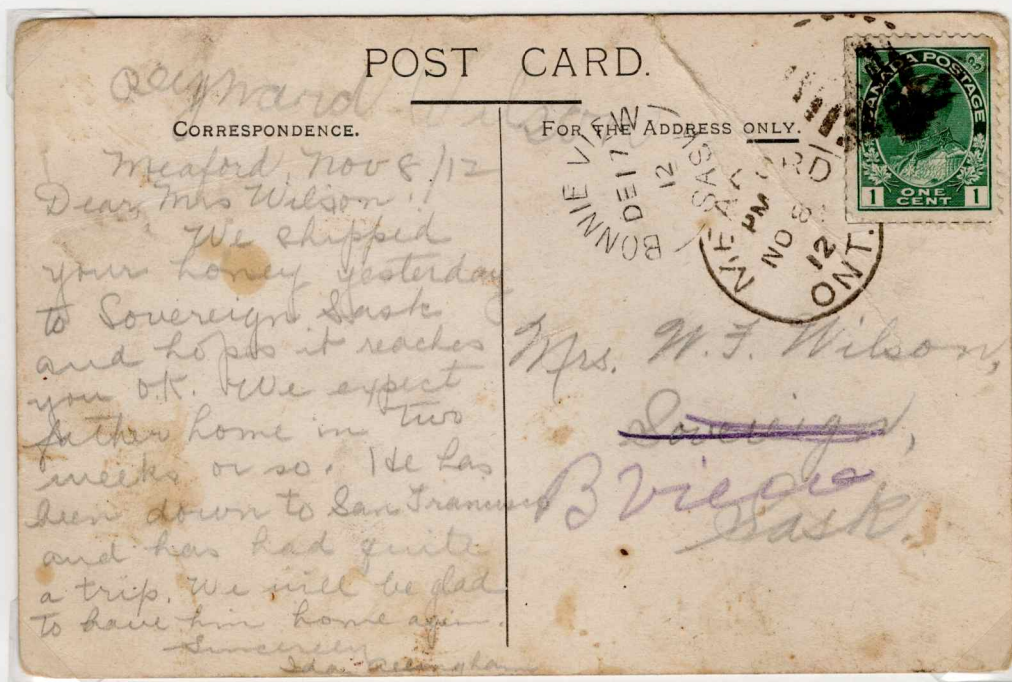 POST CARD.
CORRESPONDENCE.
FOR THE ADDRESS ONLY.
Meaford, Nov 8/12
Dear Mrs Wilson!
We shipped
your honey yesterday
to Sovereign Sask
and hopes it reaches
you O.K. We expect
father home in two
weeks or so. He has
been down to San Francisco
and has had quite
a trip. We will be glad
to have him home again.
Sincerely
Ida
BONNIE VIEW
SASK
DE 17
12
MEAFORD
PM
NO 8
12
ONT.
CANADA POSTAGE
1 ONE CENT 1
Mrs. W. F. Wilson,
Sovereign,
B View
Sask.